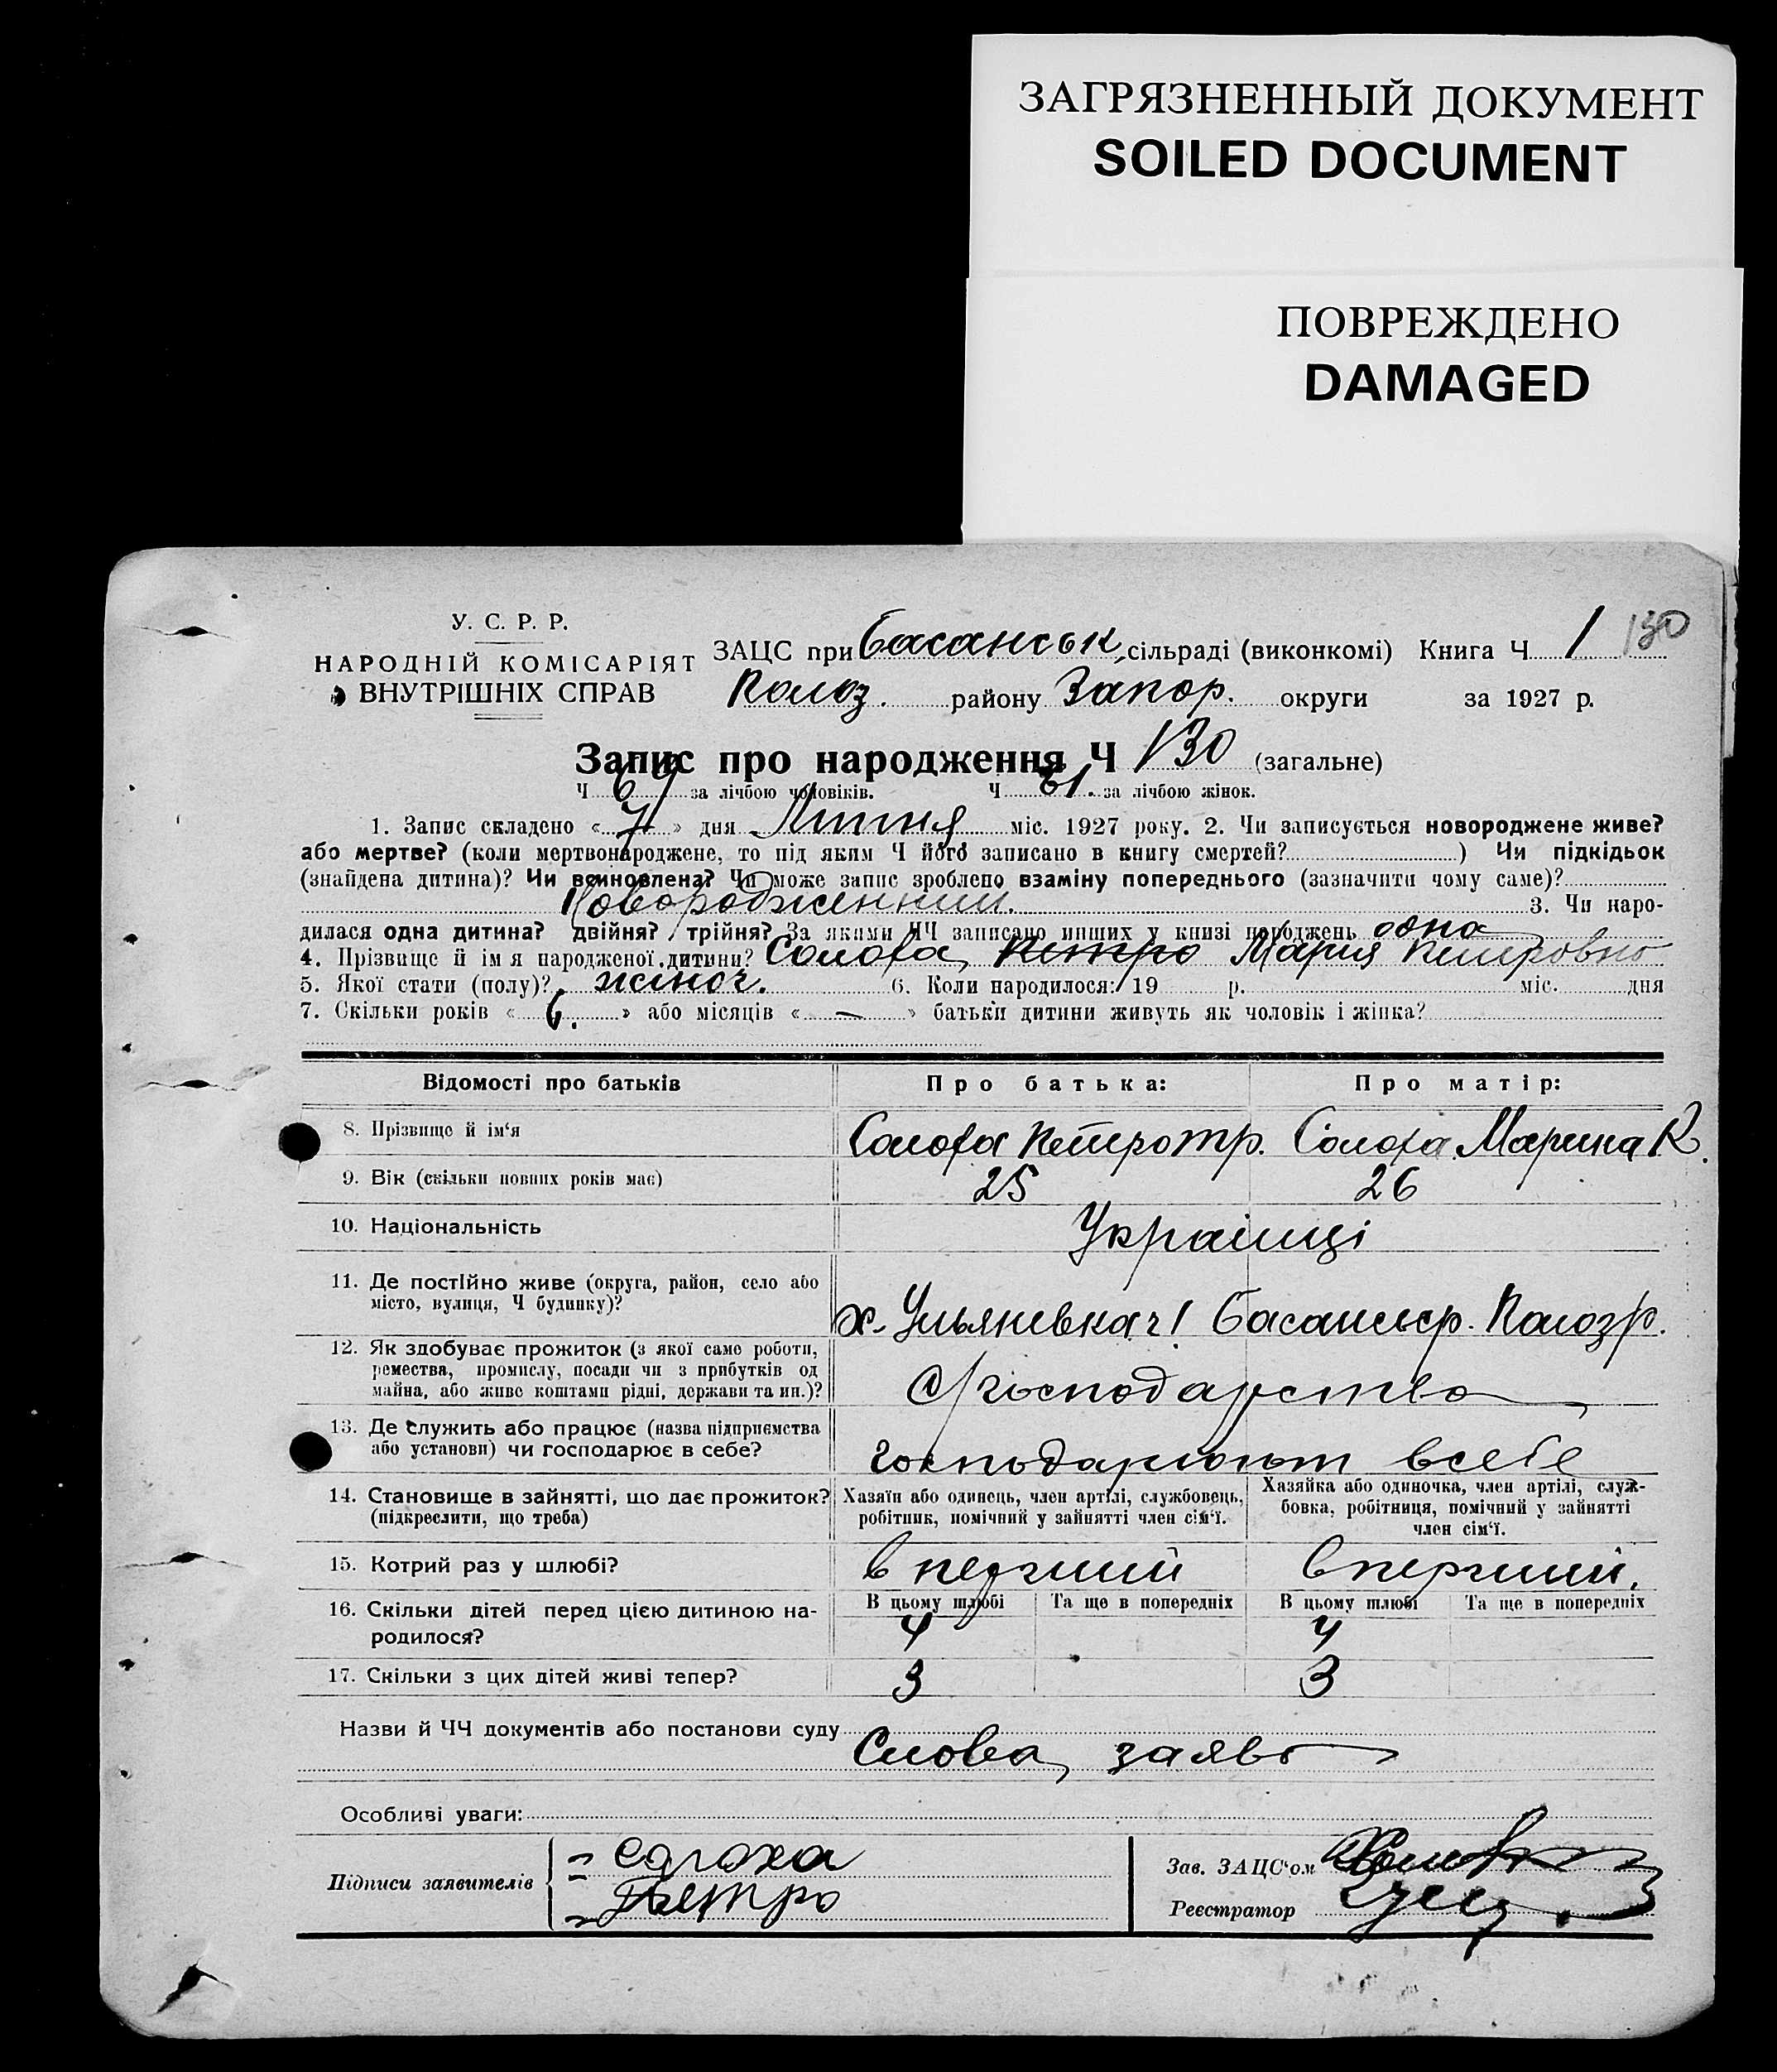 ЗАГРЯЗНЕННЫЙ ДОКУМЕНТ
SOILED DOCUMENT
ПОВРЕЖДЕНО
DAMAGED
У. С. Р. Р.
НАРОДНІЙ КОМІСАРІЯТ
ВНУТРІШНІХ СПРАВ
ЗАЦС при Басанськ. сільраді (виконкомі) Книга Ч 1 130
Полоз. району Запор. округи за 1927 р.
Запис про народження Ч 130 (загальне)
Ч 69 за лічбою чоловіків. Ч 61. за лічбою жінок.
1. Запис складено « 7 » дня Липня міс. 1927 року. 2. Чи записується новороджене живе?
або мертве? (коли мертвонароджене, то під яким Ч його записано в книгу смертей? ) Чи підкідьок
(знайдена дитина)? Чи всиновлена? Чи може запис зроблено взаміну попереднього (зазначити чому саме)?
Новородженний. 3. Чи наро-
дилася одна дитина? двійня? трійня? За якими ЧЧ записано инших у книзі народжень одна
4. Прізвище й ім я народженої дитини? Солоха, Петро Мария Петровно
5. Якої стати (полу)? жіноч. 6. Коли народилося: 19 р. міс. дня
7. Скільки років « 6. » або місяців « — » батьки дитини живуть як чоловік і жінка?
Відомості про батьків Про батька: Про матір:
8. Прізвище й ім‘я Солоха Петро Тр. Солоха Марина К.
9. Вік (скільки повних років має) 25 26
10. Національність Украінці
11. Де постійно живе (округа, район, село або
місто, вулиця, Ч будинку)?
х. Ульянівка ч1 Басаньср. Полозр.
12. Як здобуває прожиток (з якої само роботи,
ремества, промислу, посади чи з прибутків од
майна, або живе коштами рідні, держави та ин.)?
С/господарство
13. Де служить або працює (назва підприємства
або установи) чи господарює в себе?
господарюют всебе
14. Становище в зайнятті, що дає прожиток?
(підкреслити, що треба)
Хазяїн або одинець, член артілі, службовець,
робітник, помічний у зайнятті член сім‘ї.
Хазяйка або одиночка, член артілі, служ-
бовка, робітниця, помічний у зайнятті
член сім‘ї.
15. Котрий раз у шлюбі? в перший вперший,
16. Скільки дітей перед цією дитиною на-
родилося?
В цьому шлюбі Та ще в попередніх В цьому шлюбі Та ще в попередніх
4 4
17. Скільки з цих дітей живі тепер? 3 3
Назви й ЧЧ документів або постанови суду
Слова, заяво
Особливі уваги:
Підписи заявителів
Солоха
Петро
Зав. ЗАЦС‘ом
Реєстратор